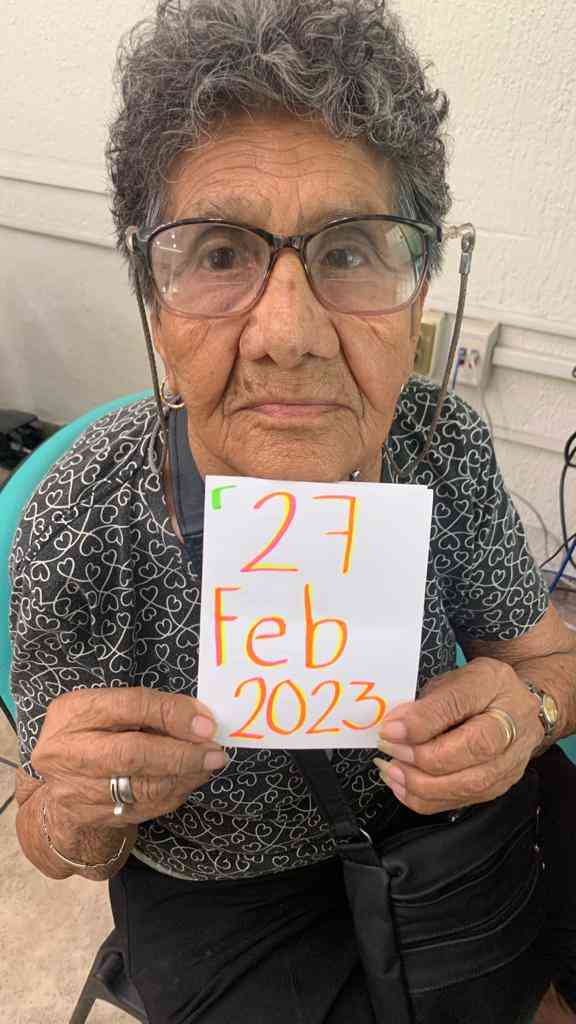 27
Feb
2023